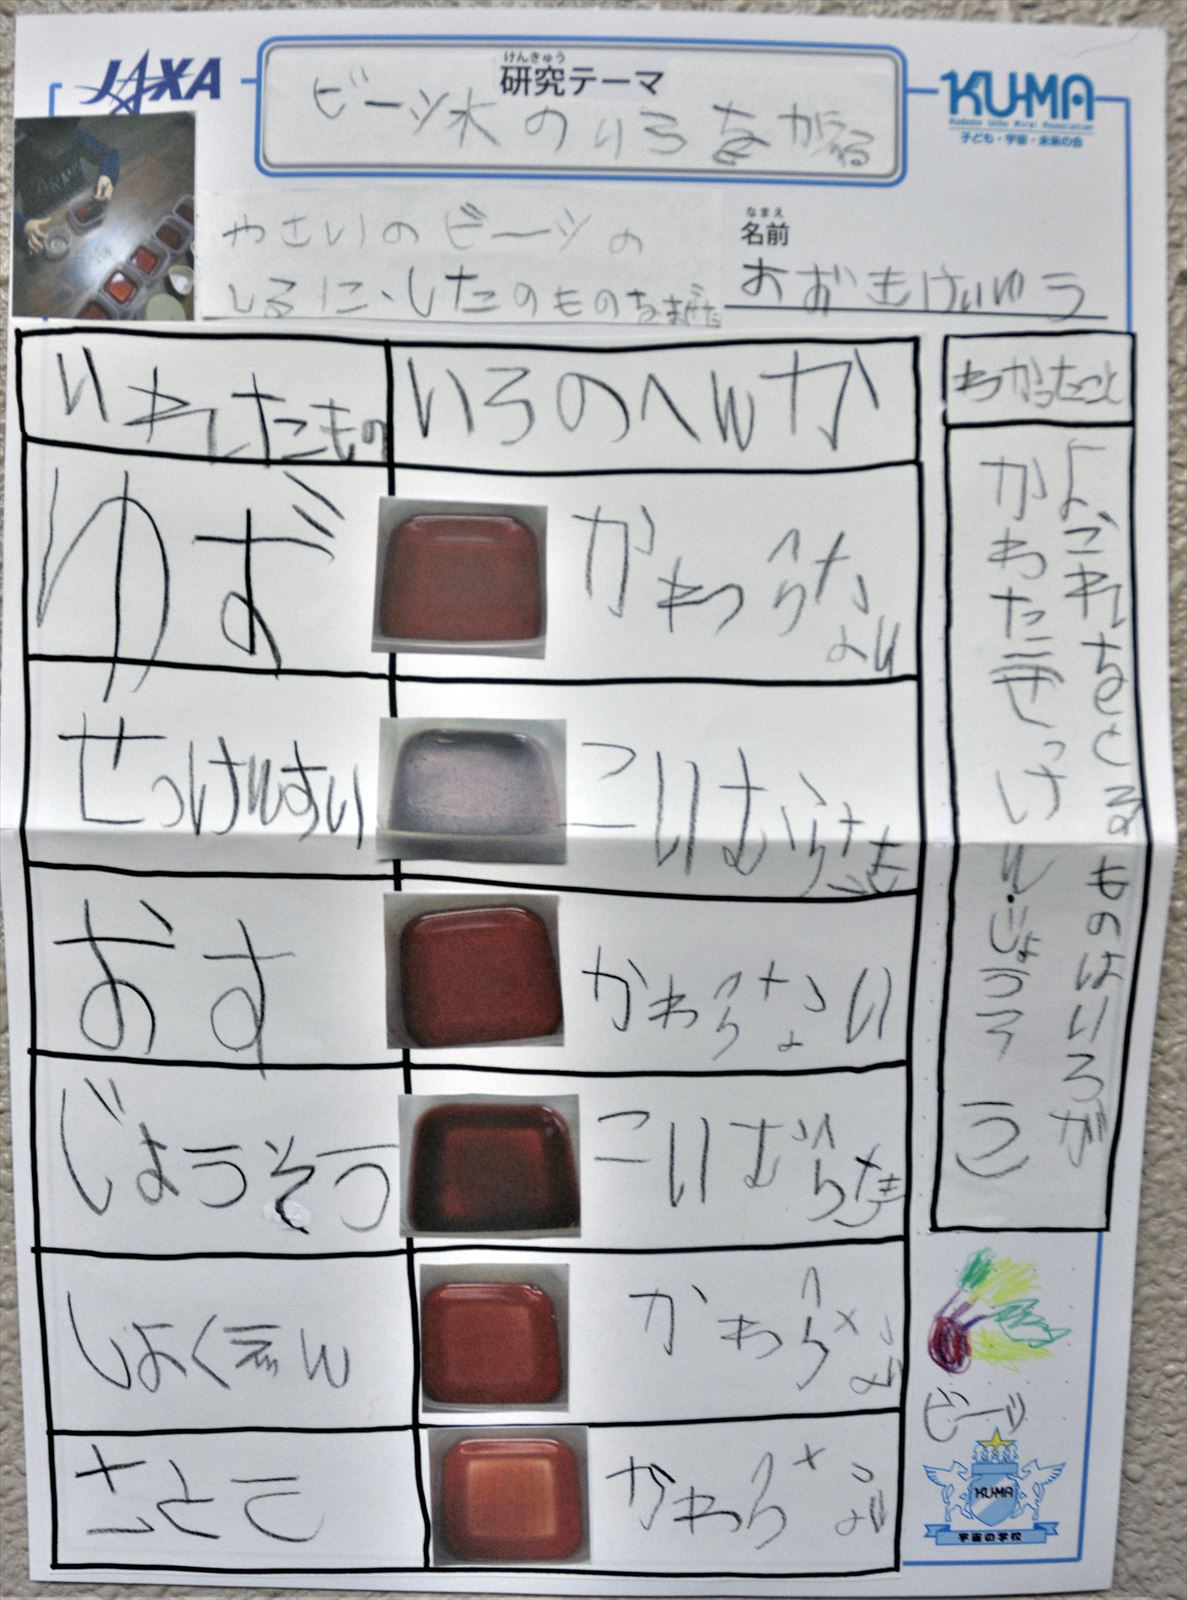 JAXA
けんきゅう
研究テーマ
ビーツ水のいろをかえる
KU-MA
Kodomo Uchu Mirai Association
子ども・宇宙・未来の会
やさいのビーツの
しるに、したのものをまぜた
なまえ
名前
いれたもの
いろのへんか
ゆず
かわらない
せっけんすい
こいむらさき
おす
かわらない
じょうそう
こいむらさき
しょくえん
かわらない
さとう
かわらない
わかったこと
よごれをとるものはいろが
かわた
ビーツ
KU-MA
宇宙の学校